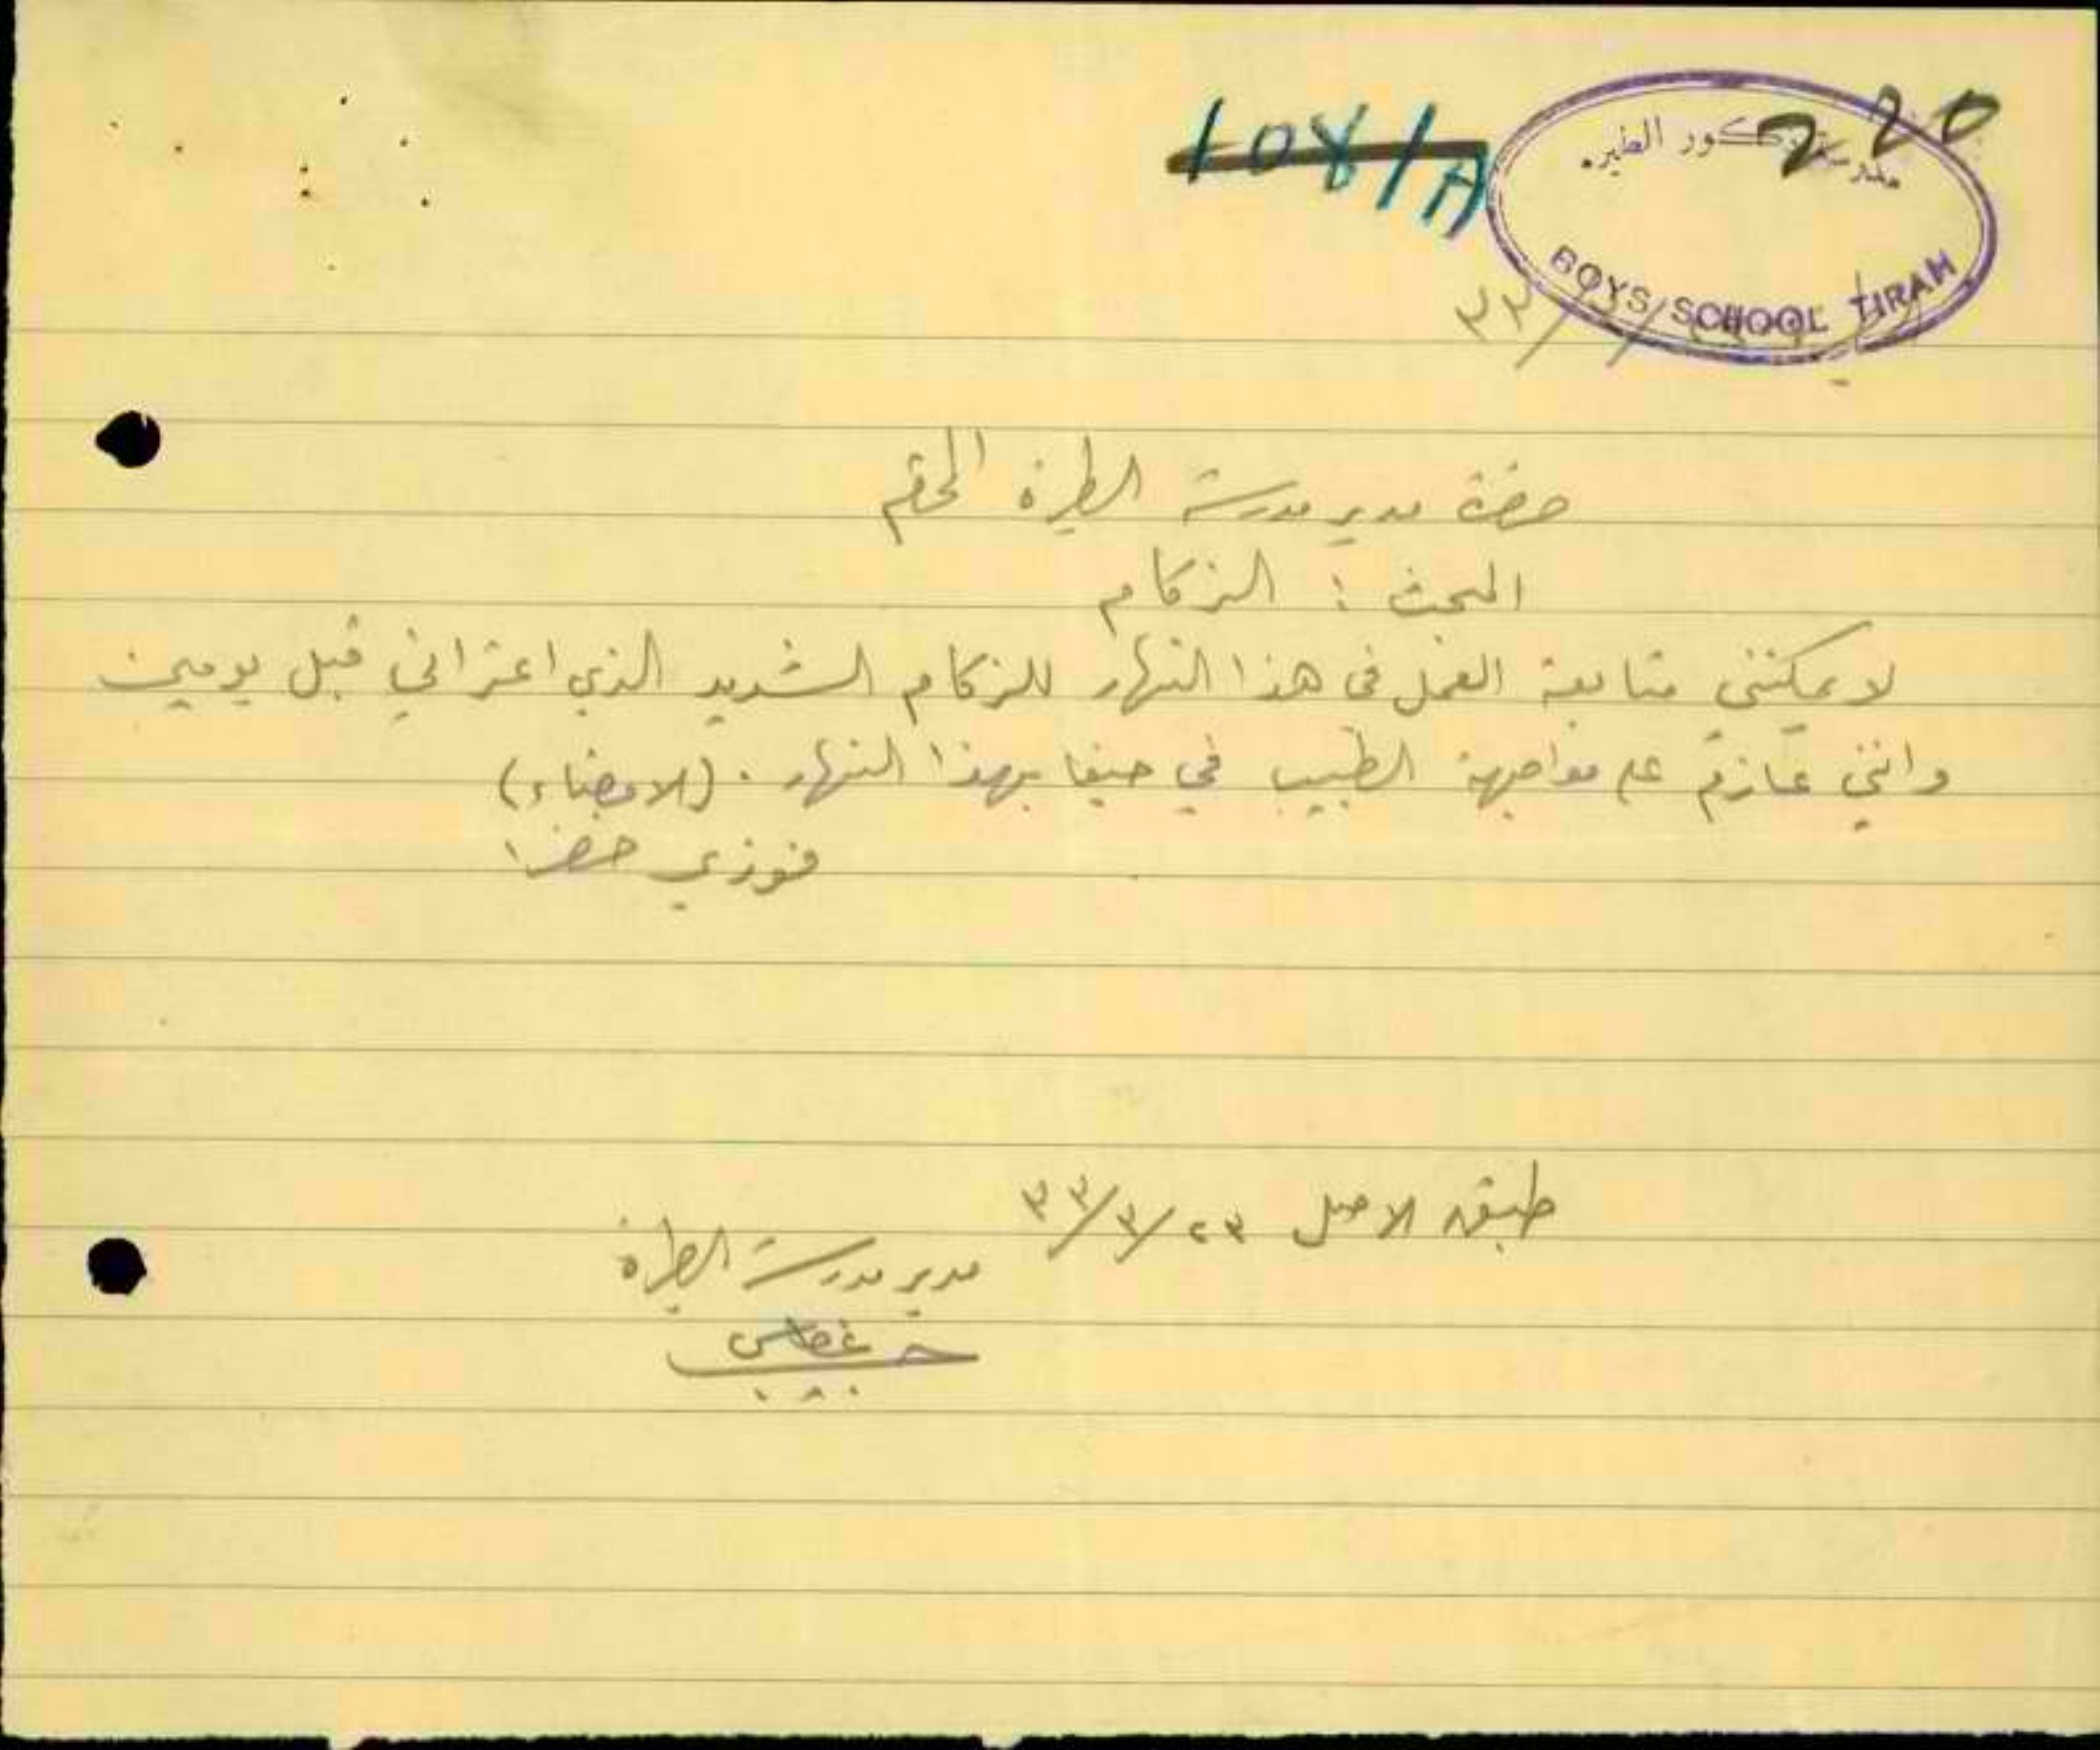 220
108/A
مدرسة ذكور الطيره
BOYS SCHOOL TIRAH
حضرة مدير مدرسة الطيرة المحترم
المبحث : الزكام
لا يمكنني متابعة العمل في هذا النهار للزكام الشديد الذي اعتراني قبل يومين
وانني عازم على مواجهة الطبيب في حيفا بهذا النهار . (الامضاء)
فوزي خضرا
طبق الاصل ٢٣/٣/٣٣
مدير مدرسة الطيرة